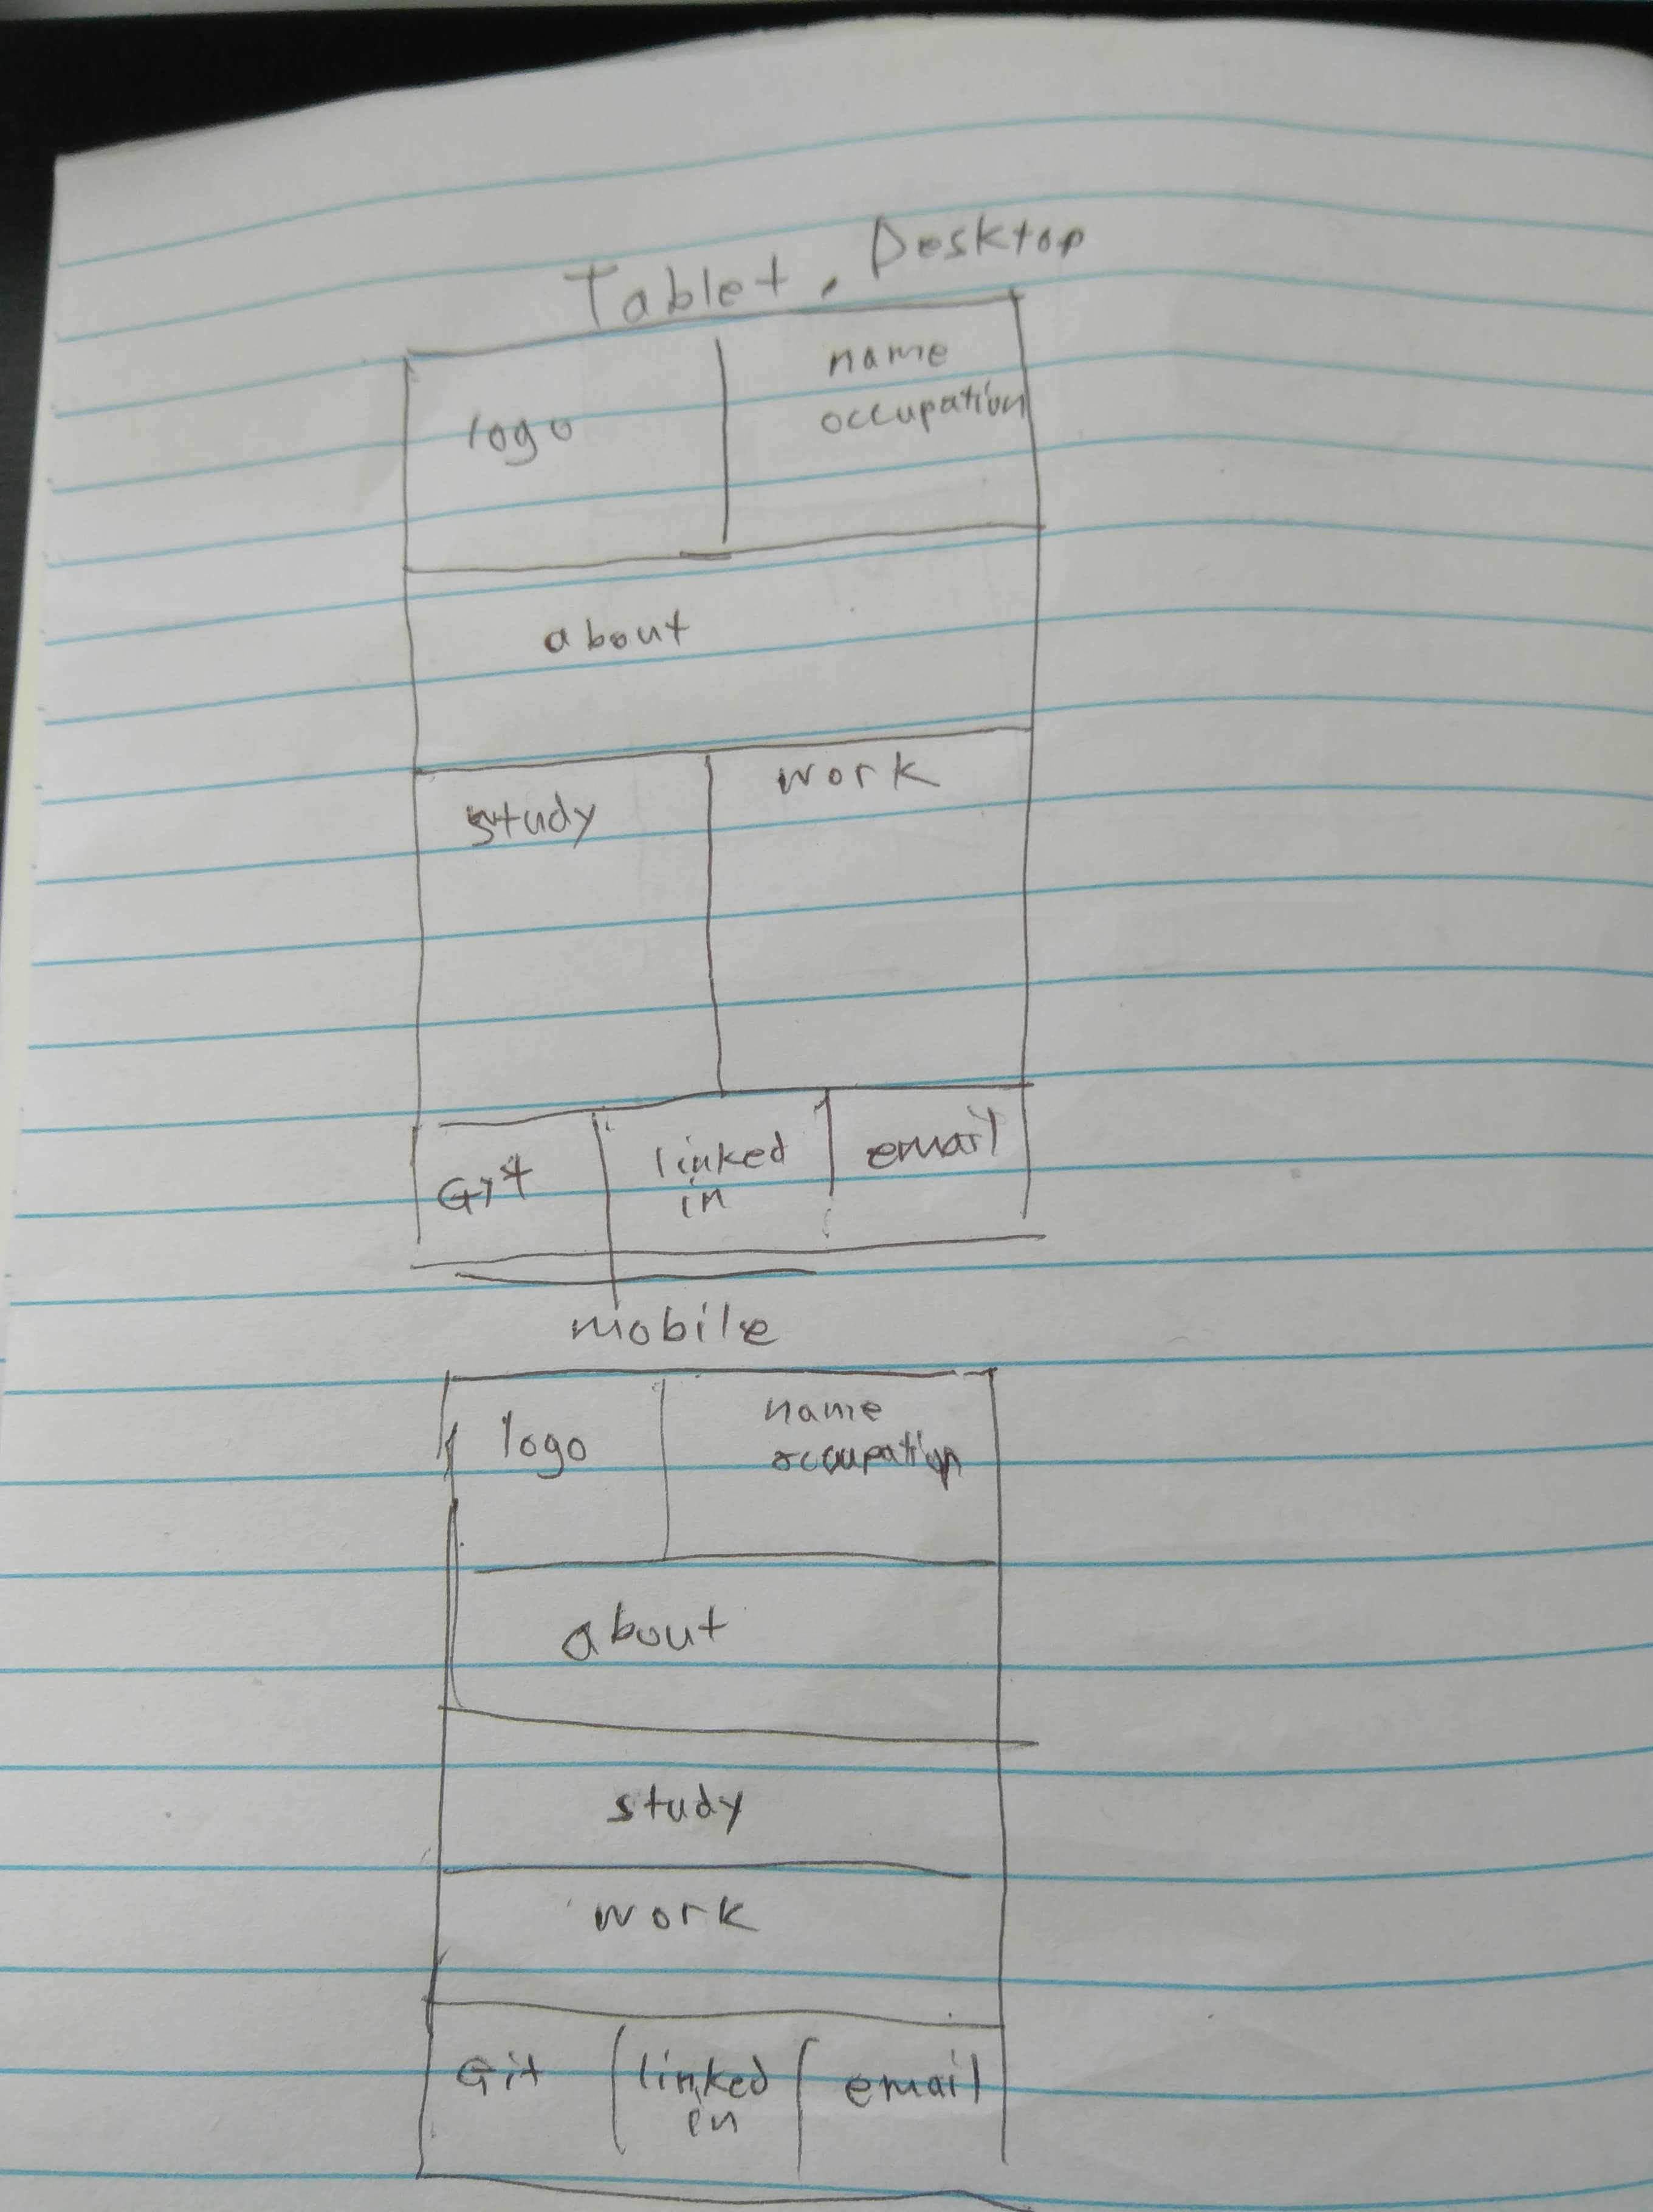 Tablet, Desktop
logo
name
occupation
about
study
work
Git
linked
in
email
mobile
logo
name
occupation
about
study
work
Git
linked
in
email